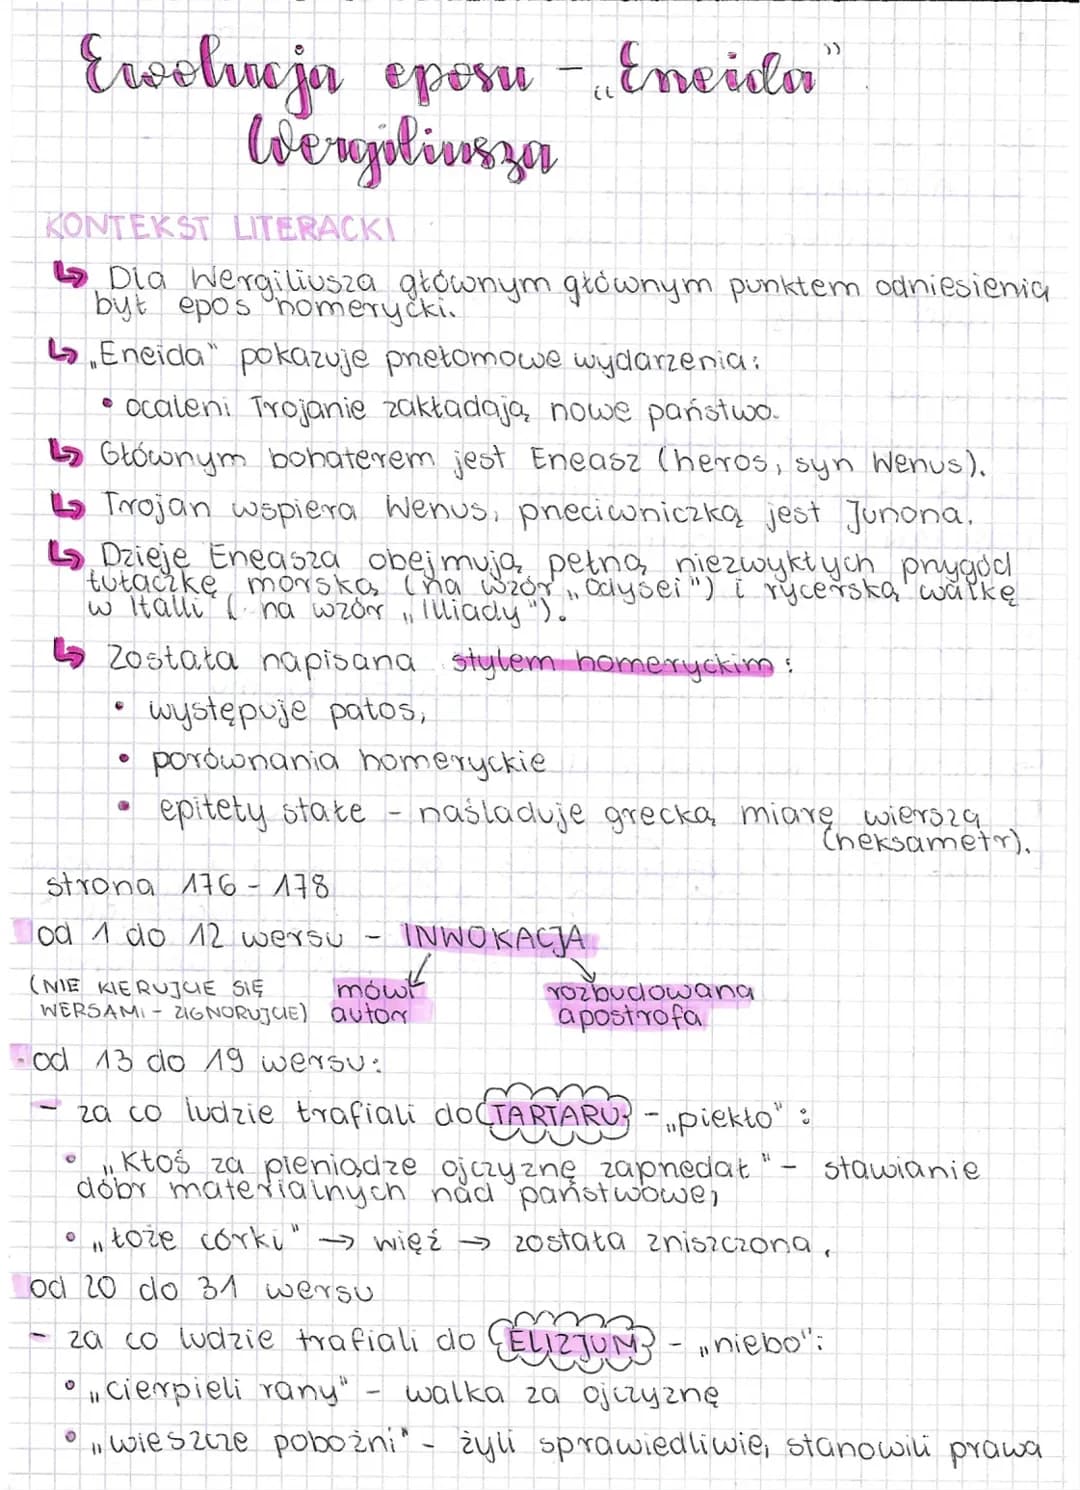 Ewolucja eposu - „Eneida”
Wergiliusza
KONTEKST LITERACKI
↳ Dla Wergiliusza głównym głównym punktem odniesienia
był epos homerycki.
↳ „Eneida" pokazuje przełomowe wydarzenia:
• ocaleni Trojanie zakładają nowe państwo.
↳ Głównym bohaterem jest Eneasz (heros, syn Wenus).
↳ Trojan wspiera Wenus, przeciwniczką jest Junona.
↳ Dzieje Eneasza obejmują pełną niezwykłych przygód
tułaczkę morską (na wzór „Odysei") i rycerską walkę
w Italli (na wzór „Illiady").
↳ Została napisana stylem homeryckim:
• występuje patos,
• porównania homeryckie
• epitety stałe - naśladuje grecką miarę wiersza
(heksametr).
strona 176-178
od 1 do 12 wersu - INWOKACJA
(NIE KIERUJCIE SIĘ mówi rozbudowana
WERSAMI - ZIGNORUJCIE) autor apostrofa
od 13 do 19 wersu:
- za co ludzie trafiali do TARTARU - „piekło":
• „Ktoś za pieniądze ojczyznę zaprzedał" - stawianie
dóbr materialnych nad państwowe,
• „łoże córki" → więź → została zniszczona,
od 20 do 31 wersu
- za co ludzie trafiali do ELIZJUM - „niebo":
• „cierpieli rany" - walka za ojczyznę
• „wieszcze pobożni" - żyli sprawiedliwie, stanowili prawa